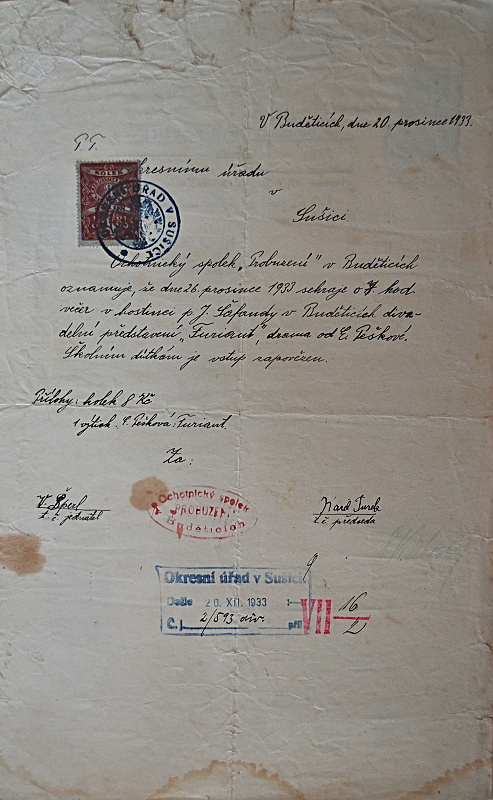 V Buděticích, dne 20. prosince 1933.
P.T.
Okresnímu úřadu
v
Sušici.
KOLEK
ÚŘAD V SUŠICI
Ochotnický spolek „Probuzení" v Buděticích
oznamuje, že dne 26. prosince 1933 sehraje o 7 hod
večer v hostinci p. J. Šafandy v Buděticích diva-
delní představení „Furiant", drama od E. Peškové.
Školním dítkám je vstup zapovězen.
Přílohy: kolek 8 Kč
1 výtisk E. Pešková: Furiant.
Za:
V.
t. č. jednatel
Ochotnický spolek
PROBUZENÍ
v Buděticích
t. č. předseda
Okresní úřad v Sušici
Došlo 20. XII. 1933
Č. j. 2/593 div. příl.
VII 16/2